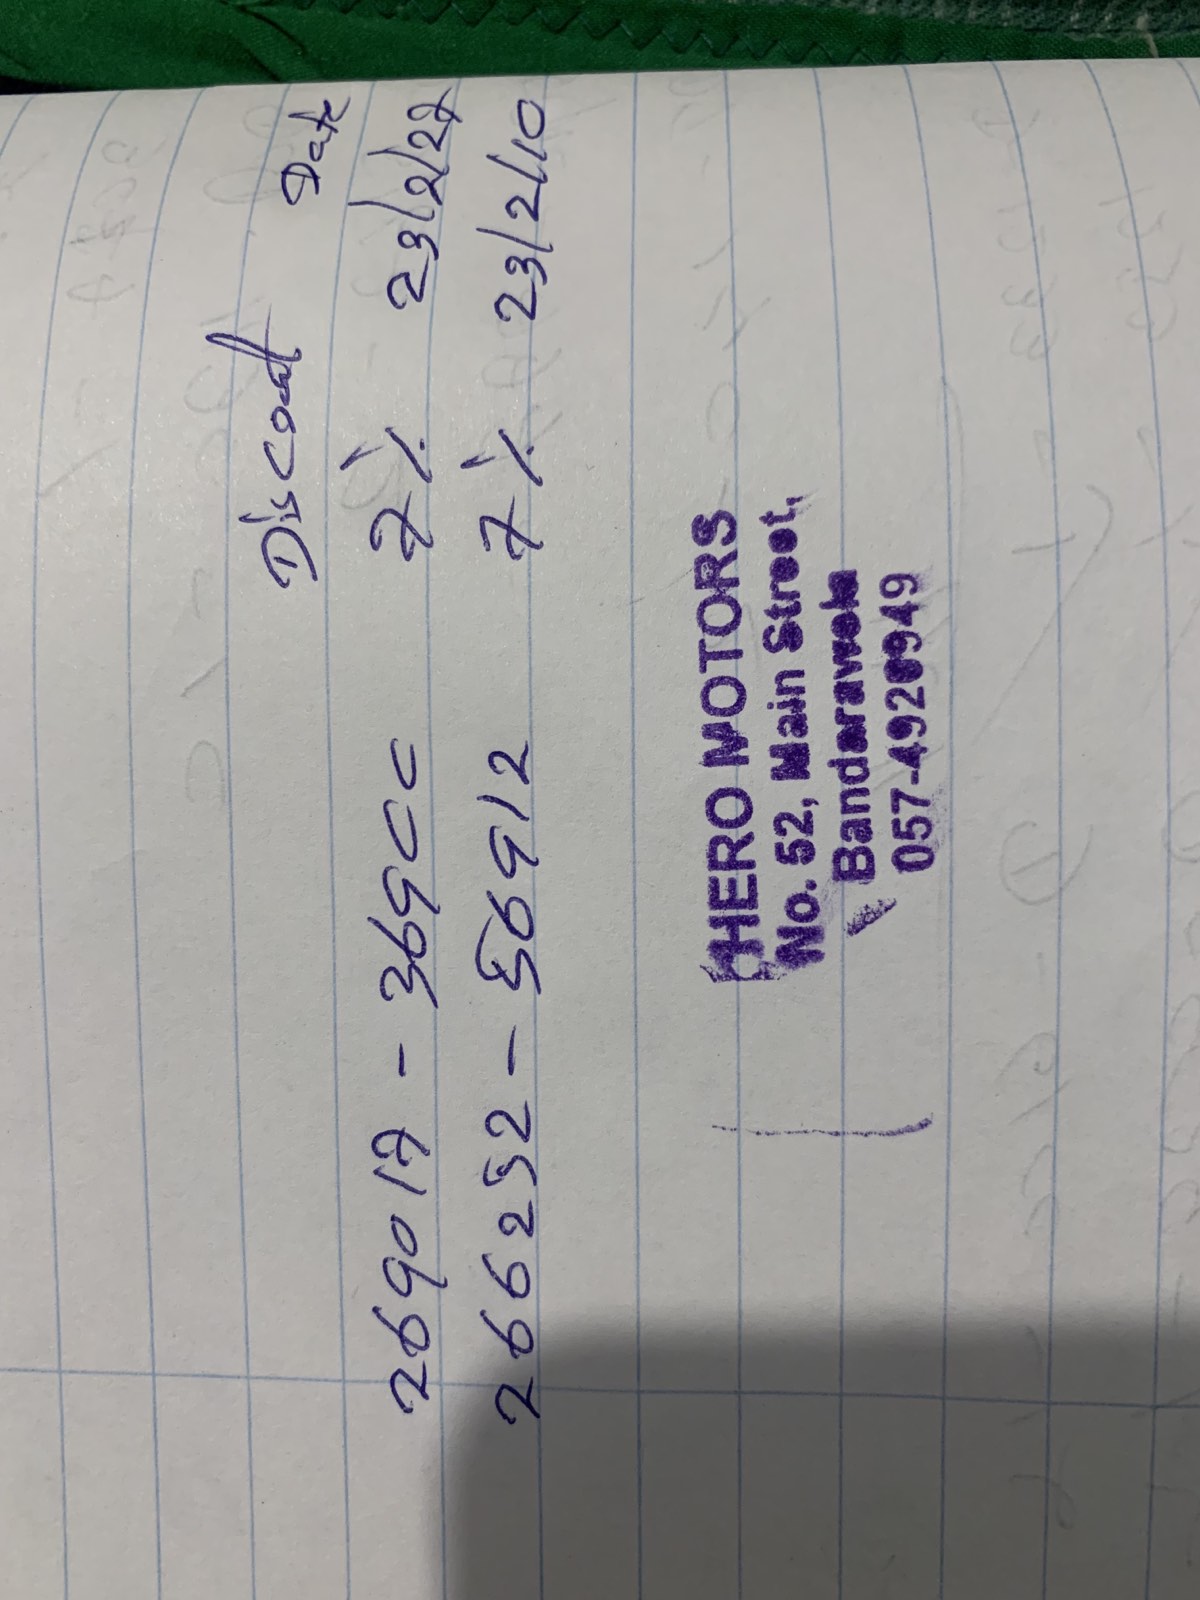 Discount Date
269017 - 369CC 7% 23/2/27
266252 - 56912 7% 23/2/10
HERO MOTORS
No. 52, Main Street,
Bandarawela
057-4920949